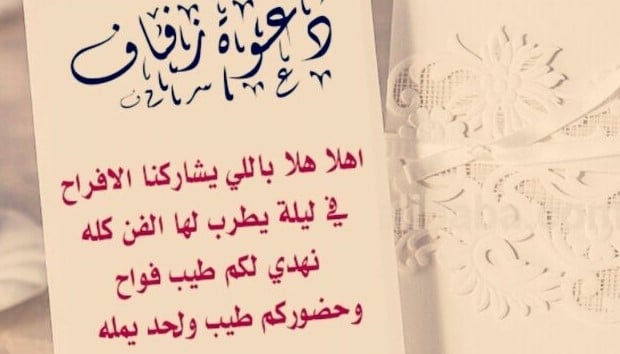 دعوة زفاف
اهلا هلا باللي يشاركنا الافراح
في ليلة يطرب لها الفن كله
نهدي لكم طيب فواح
وحضوركم طيب ولحد يمله